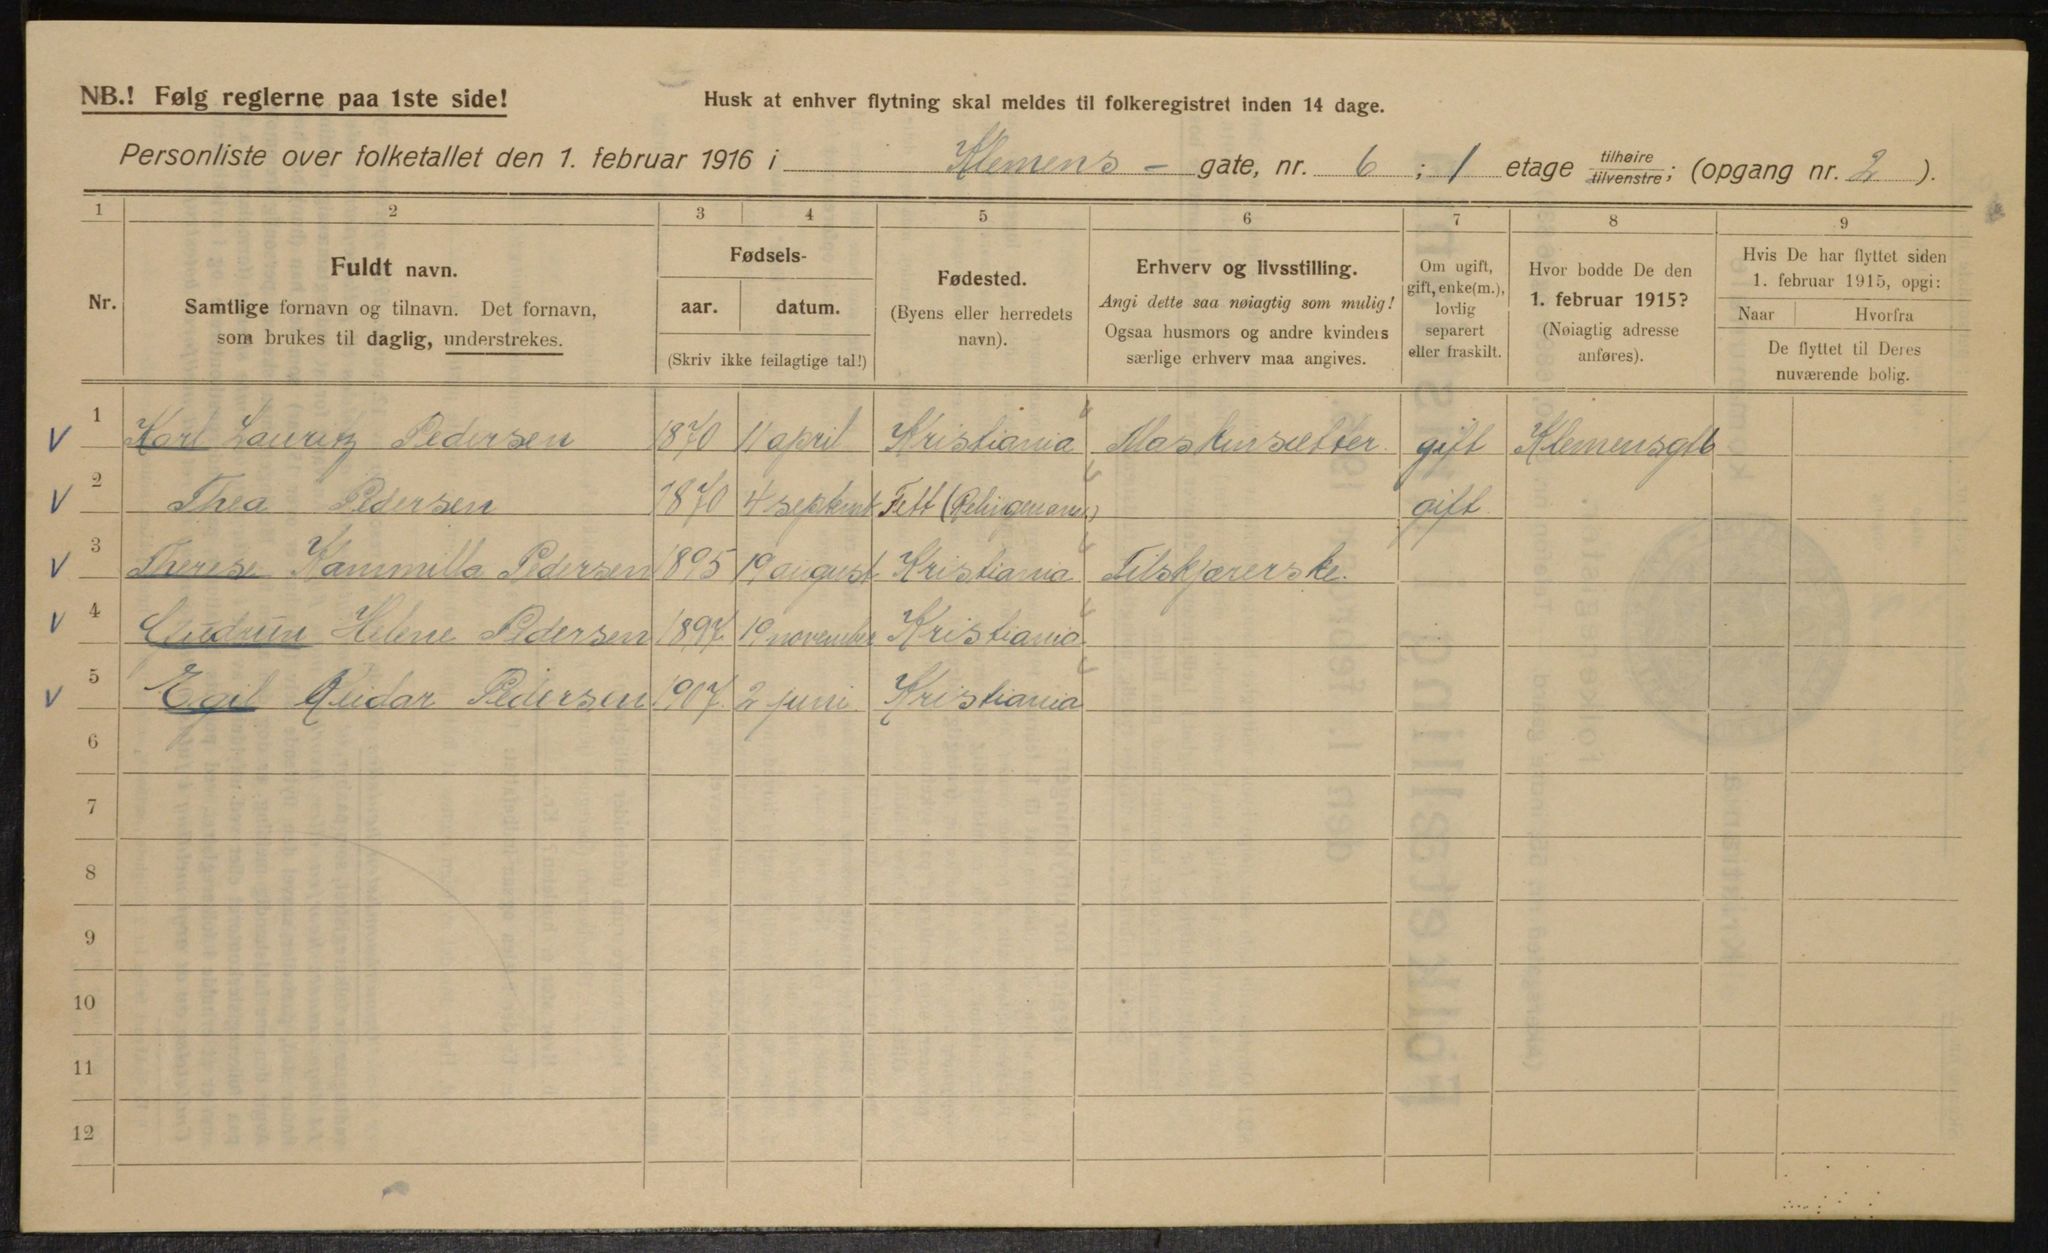 NB.! Følg reglerne paa 1ste side!
Husk at enhver flytning skal meldes til folkeregistret inden 14 dage.
Personliste over folketallet den 1. februar 1916 i Klemens - gate, nr. 6 ; 1 etage tilhøire / tilvenstre ; (opgang nr. 2 ).
1 2 3 4 5 6 7 8 9
Nr.
Fuldt navn.
Samtlige fornavn og tilnavn. Det fornavn,
som brukes til daglig, understrekes.
Fødsels-
aar. datum.
(Skriv ikke feilagtige tal!)
Fødested.
(Byens eller herredets
navn).
Erhverv og livsstilling.
Angi dette saa nøiagtig som mulig!
Ogsaa husmors og andre kvinders
særlige erhverv maa angives.
Om ugift,
gift, enke(m.),
lovlig
separert
eller fraskilt.
Hvor bodde De den
1. februar 1915?
(Nøiagtig adresse
anføres).
Hvis De har flyttet siden
1. februar 1915, opgi:
Naar Hvorfra
De flyttet til Deres
nuværende bolig.
1 Karl Lauritz Pedersen 1870 11 april Kristiania Maskinsætter gift Klemensgt 6
2 Thea Pedersen 1870 4 septemb Fett gift
3 Therese Kammilla Pedersen 1895 19 august Kristiania Tilskjærerske.
4 Gudrun Helene Pedersen 1897 19 november Kristiania
5 Egil Reidar Pedersen 1907. 2 juni. Kristiania
6
7
8
9
10
11
12